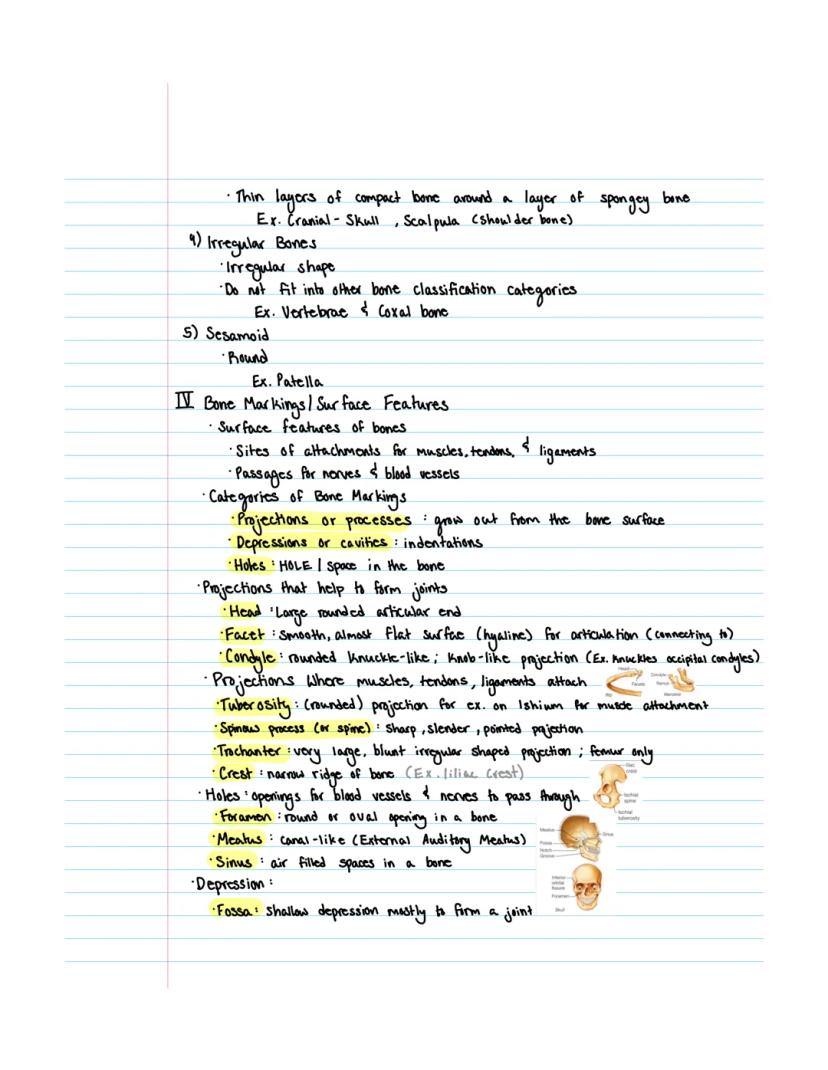 · Thin layers of compact bone around a layer of spongey bone
Ex. Cranial - Skull , Scalpula (shoulder bone)
4) Irregular Bones
· Irregular shape
· Do not fit into other bone classification categories
Ex. Vertebrae & Coxal bone
5) Sesamoid
· Round
Ex. Patella
IV Bone Markings | Surface Features
· Surface features of bones
· Sites of attachments for muscles, tendons, & ligaments
· Passages for nerves & blood vessels
· Categories of Bone Markings
· Projections or processes : grow out from the bone surface
· Depressions or cavities : indentations
· Holes : HOLE | space in the bone
· Projections that help to form joints
· Head : Large rounded articular end
· Facet : smooth, almost flat surfae (hyaline) for articulation (connecting to)
· Condyle : rounded knuckle-like; knob-like projection (Ex. knuckles occipital condyles)
Head
Condyle
Facets
Ramus
Rib
Mandible
· Projections where muscles, tendons, ligaments attach
· Tuberosity : (rounded) projection for ex. on Ishium for muscle attachment
· Spinous process (or spine) : sharp, slender, pointed projection
· Trochanter : very large, blunt irregular shaped projection ; femur only
· Crest : narrow ridge of bone (Ex. Iiliac Crest)
Iliac crest
Ischial spine
Ischial tuberosity
· Holes : openings for blood vessels & nerves to pass through
· Foramen : round or oval opening in a bone
· Meatus : canal-like (External Auditory Meatus)
· Sinus : air filled spaces in a bone
Meatus
Sinus
Fossa
Notch
Groove
· Depression :
· Fossa : shallow depression mostly to form a joint
Inferior orbital fissure
Foramen
Skull